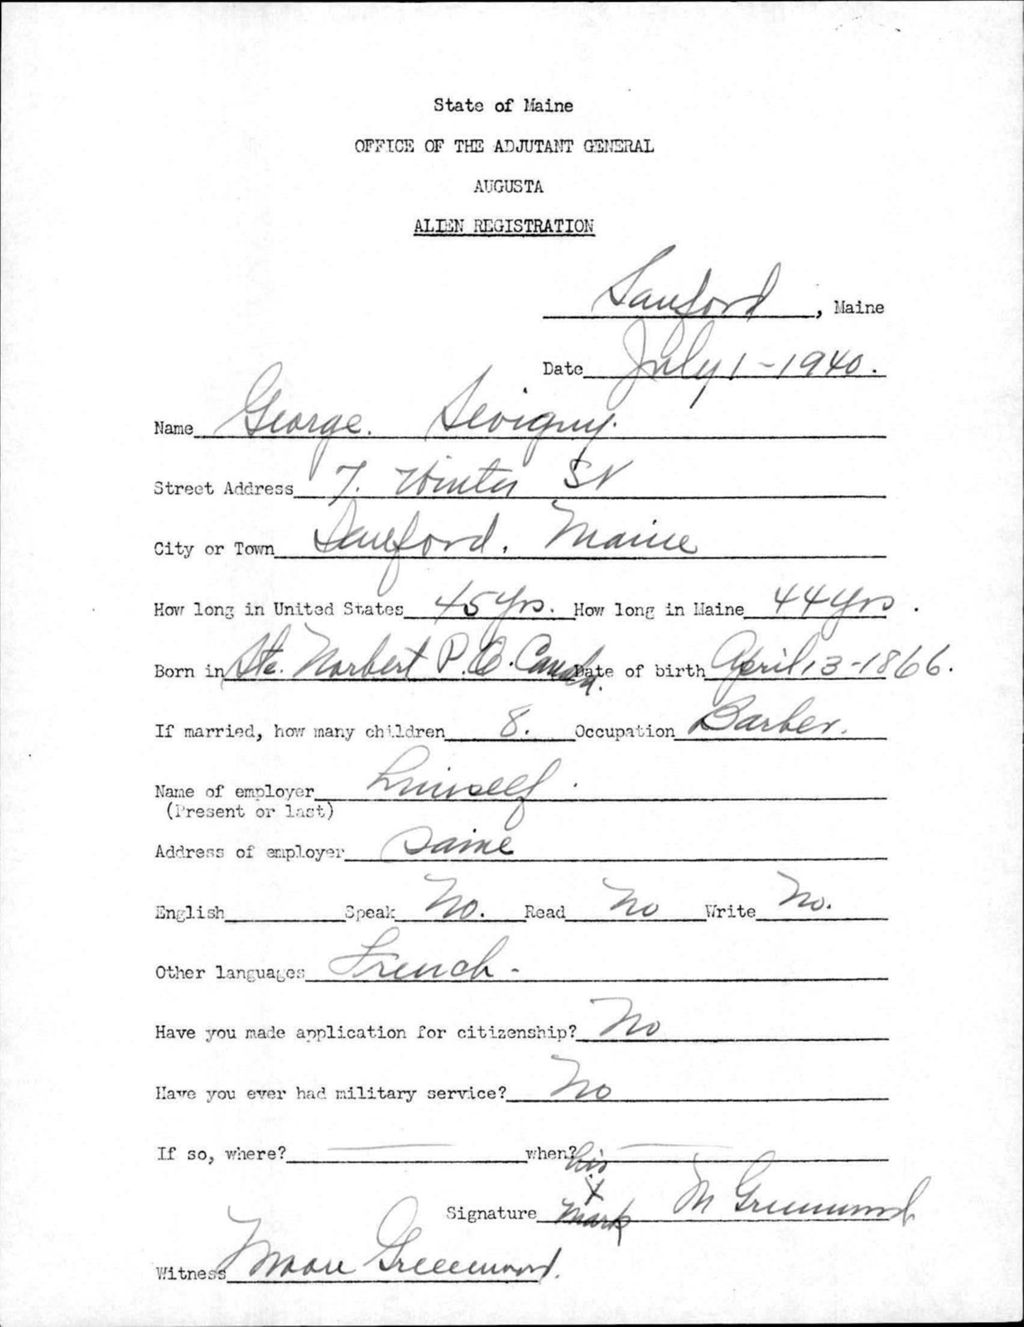 State of Maine
OFFICE OF THE ADJUTANT GENERAL
AUGUSTA
ALIEN REGISTRATION
Sanford, Maine
Date July 1-1940.
Name George. Sevigny.
Street Address 7. Winter St
City or Town Sanford, Maine
How long in United States 45 yrs. How long in Maine 44 yrs.
Born in Ste. Norbert P.Q. Canada. Date of birth April 13-1866.
If married, how many children 8. Occupation Barber.
Name of employer himself.
(Present or last)
Address of employer Same
English Speak No. Read No Write No.
Other languages French -
Have you made application for citizenship? No
Have you ever had military service? No
If so, where? when?
his
X
Signature mark M Greenwood
Witness Greenwood.